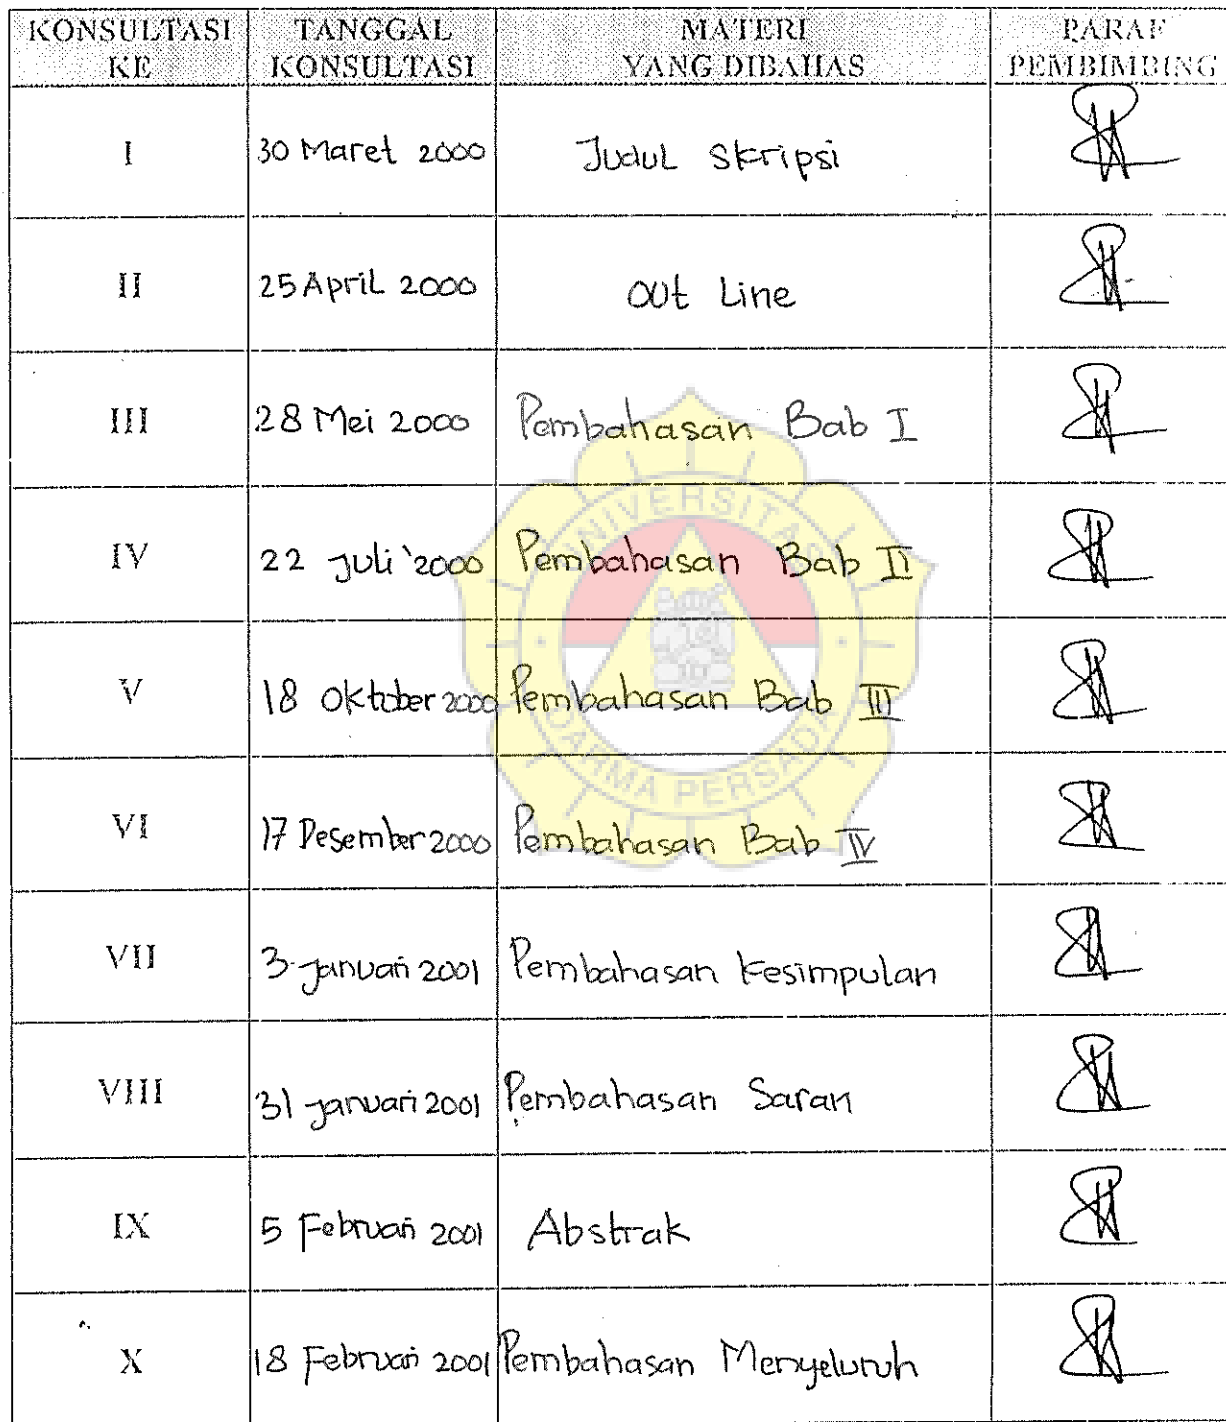 KONSULTASI KE TANGGAL KONSULTASI MATERI YANG DIBAHAS PARAF PEMBIMBING
I 30 Maret 2000 Judul Skripsi
II 25 April 2000 Out Line
III 28 Mei 2000 Pembahasan Bab I
IV 22 Juli '2000 Pembahasan Bab II
V 18 Oktober 2000 Pembahasan Bab III
VI 17 Desember 2000 Pembahasan Bab IV
VII 3 Januari 2001 Pembahasan Kesimpulan
VIII 31 Januari 2001 Pembahasan Saran
IX 5 Februari 2001 Abstrak
X 18 Februari 2001 Pembahasan Menyeluruh
UNIVERSITAS
DARMA PERSADA